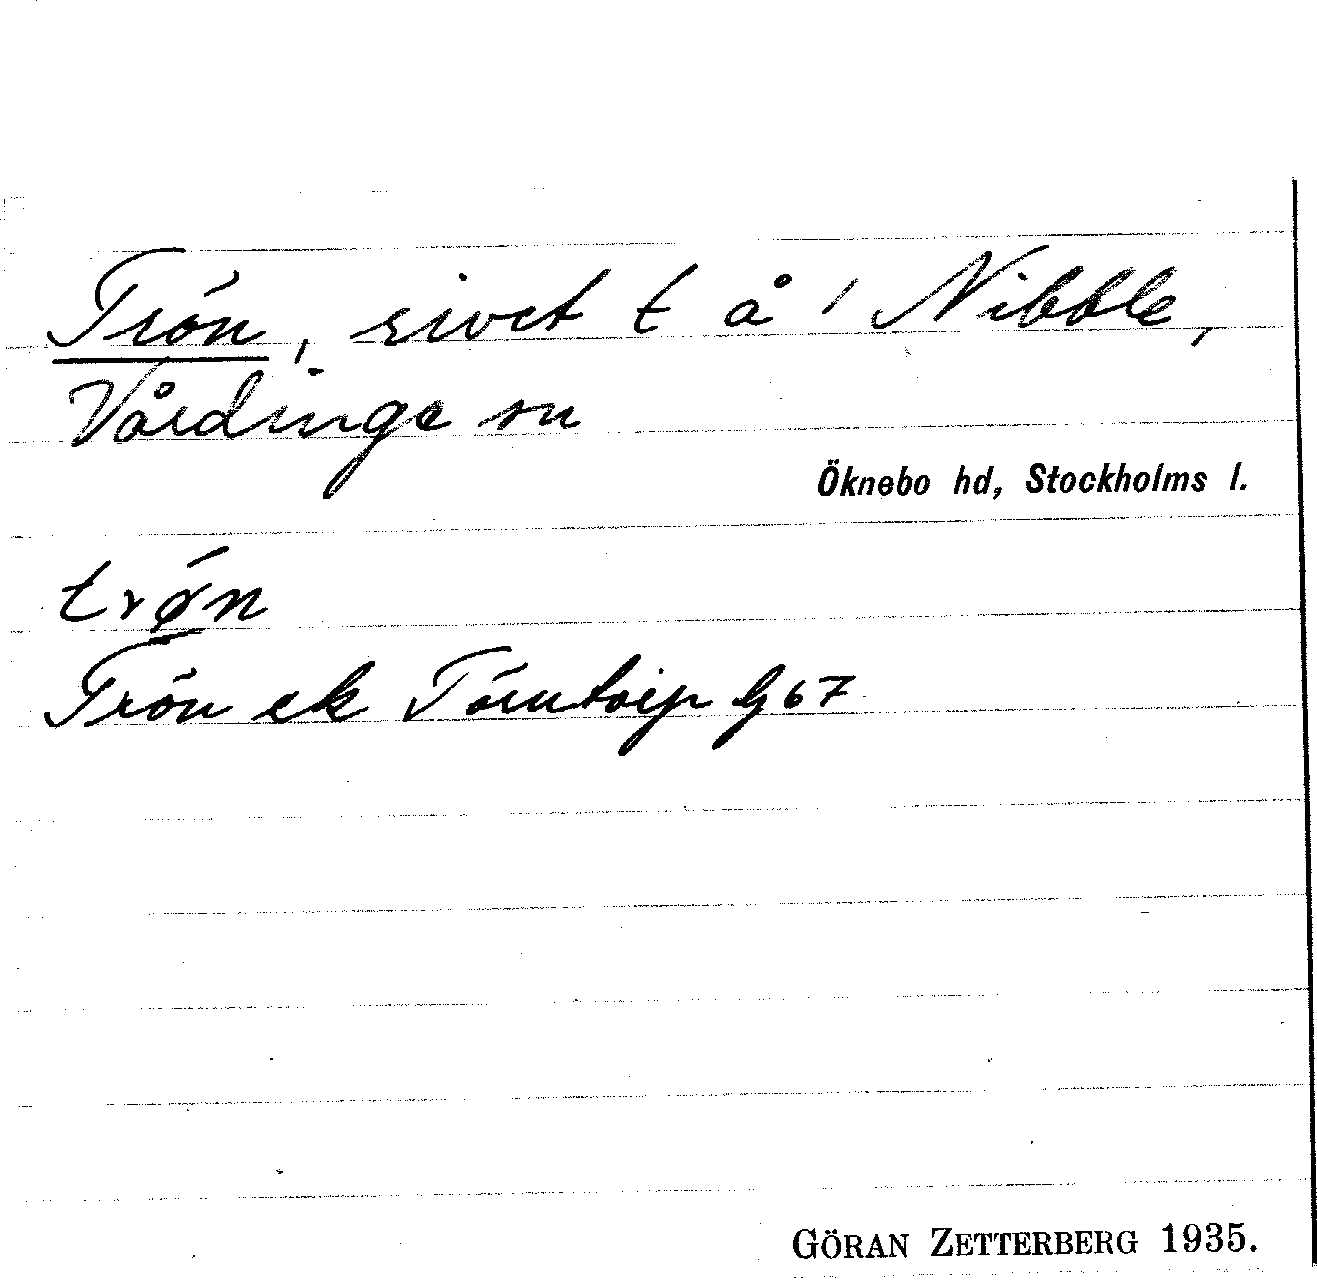 Trön, rivet t å i Nibble,
Vårdinge sn
Öknebo hd, Stockholms l.
trøn
Trön ek Törntorp 67
GÖRAN ZETTERBERG 1935.